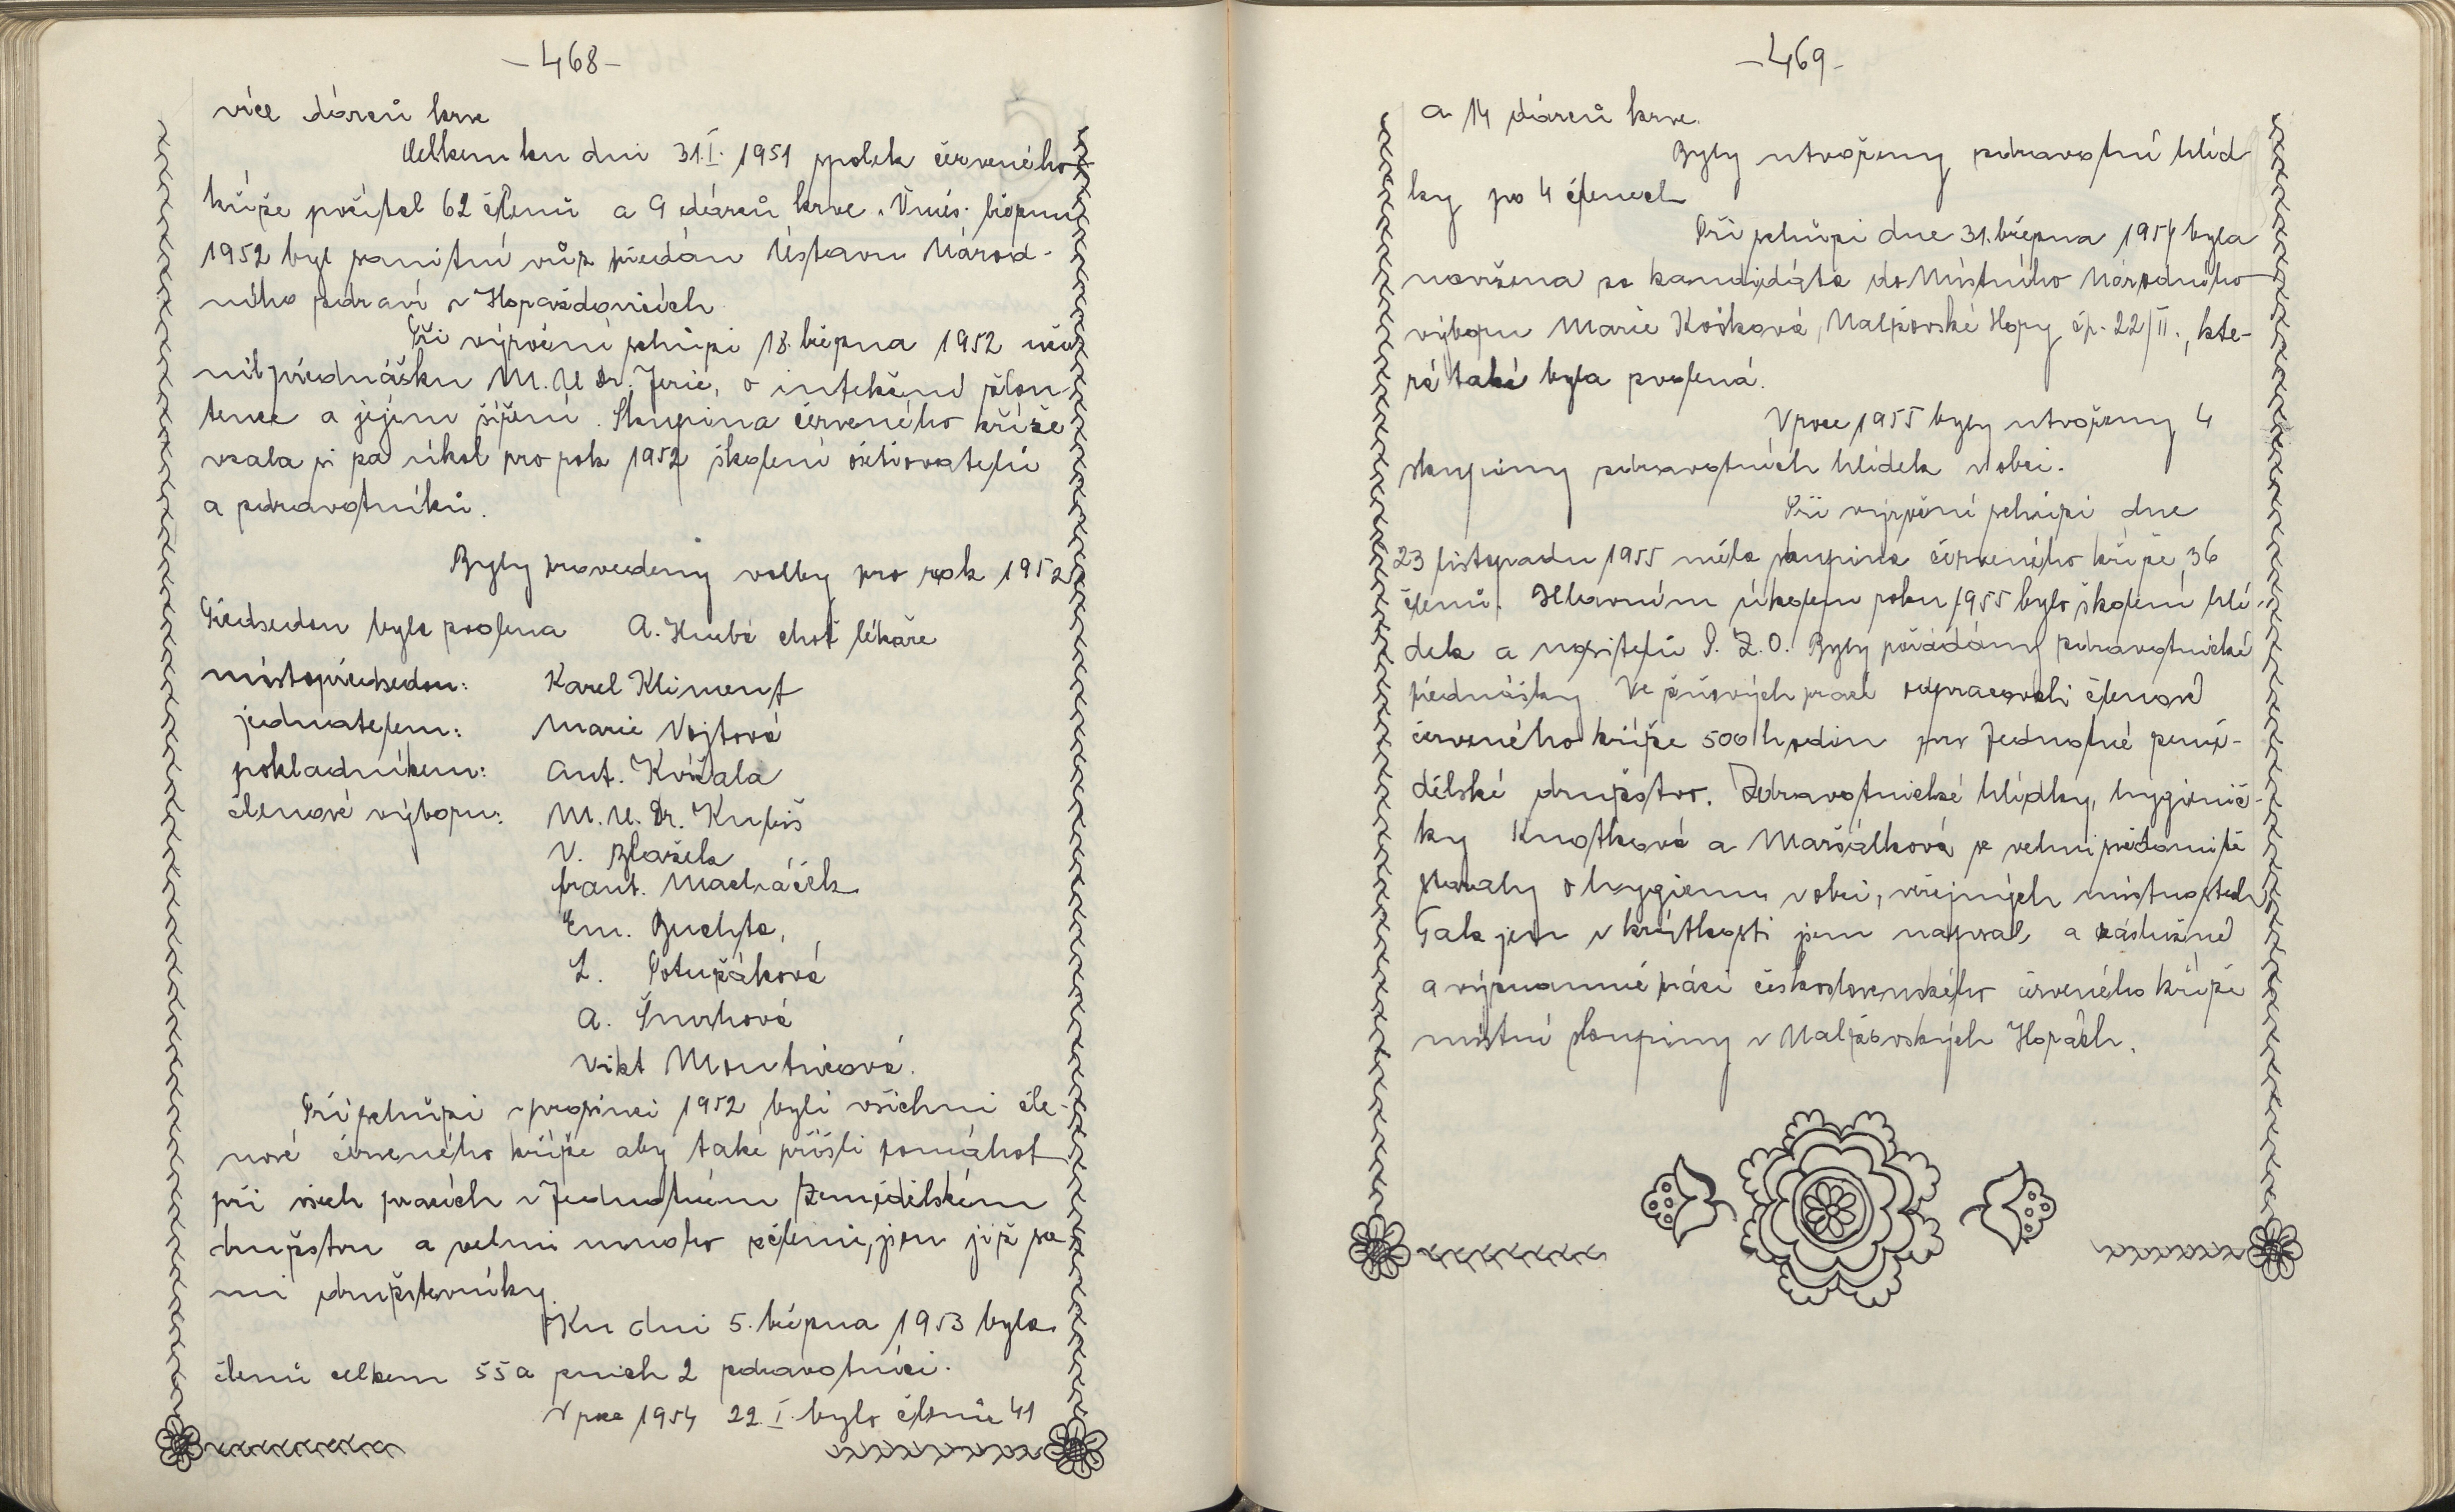 - 468 -
více dárců krve
Celkem ku dni 31.I. 1951 spolek červeného
kříže počítal 62 členů a 9 dárců krve. V měs. březnu
1952 byl sanitní vůz předán Ústavu Národ-
ního zdraví v Horažďovicích
Při výroční schůzi 18. března 1952 uči-
nil přednášku M.U Dr. Jerie, o infekční žlou
tence a jejím šíření. Skupina červeného kříže
vzala si za úkol pro rok 1952 školení ošetřovatelů
a zdravotníků.
Byly provedeny volby pro rok 1952
Předsedou byla zvolena A. Hrubá choť lékaře
místopředsedou: Karel Kliment
jednatelem: Marie Vojtová
pokladníkem: Ant. Kvížala
členové výboru: M.U. Dr. Kubiš
V. Blažek
frant. Macháček
Em. Buchta,
L. Potužáková
A. Šmrhová
Vikt Mondnícová.
Při schůzi v prosinci 1952 byli všichni čle-
nové červeného kříže aby také přišli pomáhat
při všech pracích v Jednotném Zemědělském
družstvu a velmi mnoho členů, jsou již sa-
mi družstevníky.
Ku dni 5. března 1953 bylo
členů celkem 55 a z nich 2 zdravotníci.
V roce 1954 22.I. bylo členů 41
- 469 -
a 14 dárců krve.
Byly utvořeny zdravotní hlíd
ky po 4 členech
Při schůzi dne 31. března 1954 byla
navržena za kandidáta do Místního Národního
výboru Marie Košková, Nalžovské Hory čp. 22/II., kte-
rá také byla zvolená.
V roce 1955 byly utvořeny 4
skupiny zdravotních hlídek v obci.
Při výroční schůzi dne
23 listopadu 1955 měla skupina červeného kříže 36
členů. Hlavním úkolem roku 1955 bylo školení hlí-
dek a nositelů P.Z.O. Byly pořádány zdravotnické
přednášky. Ve žňových prací odpracovali členové
červeného kříže 500 hodin pro Jednotné země-
dělské družstvo. Zdravotnické hlídky, hygienič-
ky Knotková a Maršálková se velmi svědomitě
staraly o hygienu v obci, veřejných místnostech
Tak jen v krátkosti jsem napsal, a záslužné
a významné práci československého červeného kříže
místní skupiny v Nalžovských Horách.